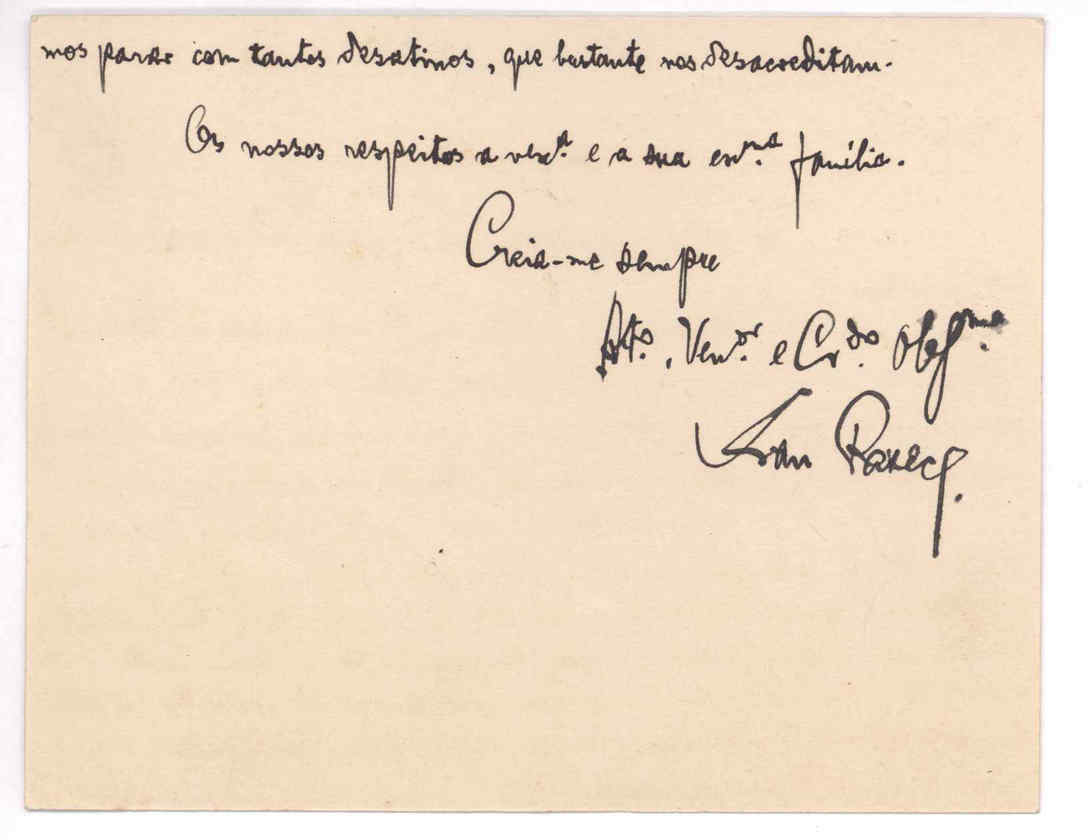 mos parar com tantos desatinos, que bastante nos desacreditam.
Os nossos respeitos a vexª. e a sua exmª. família.
Creia-me sempre
Attº., Venºr. e Crdº. Obgmº.